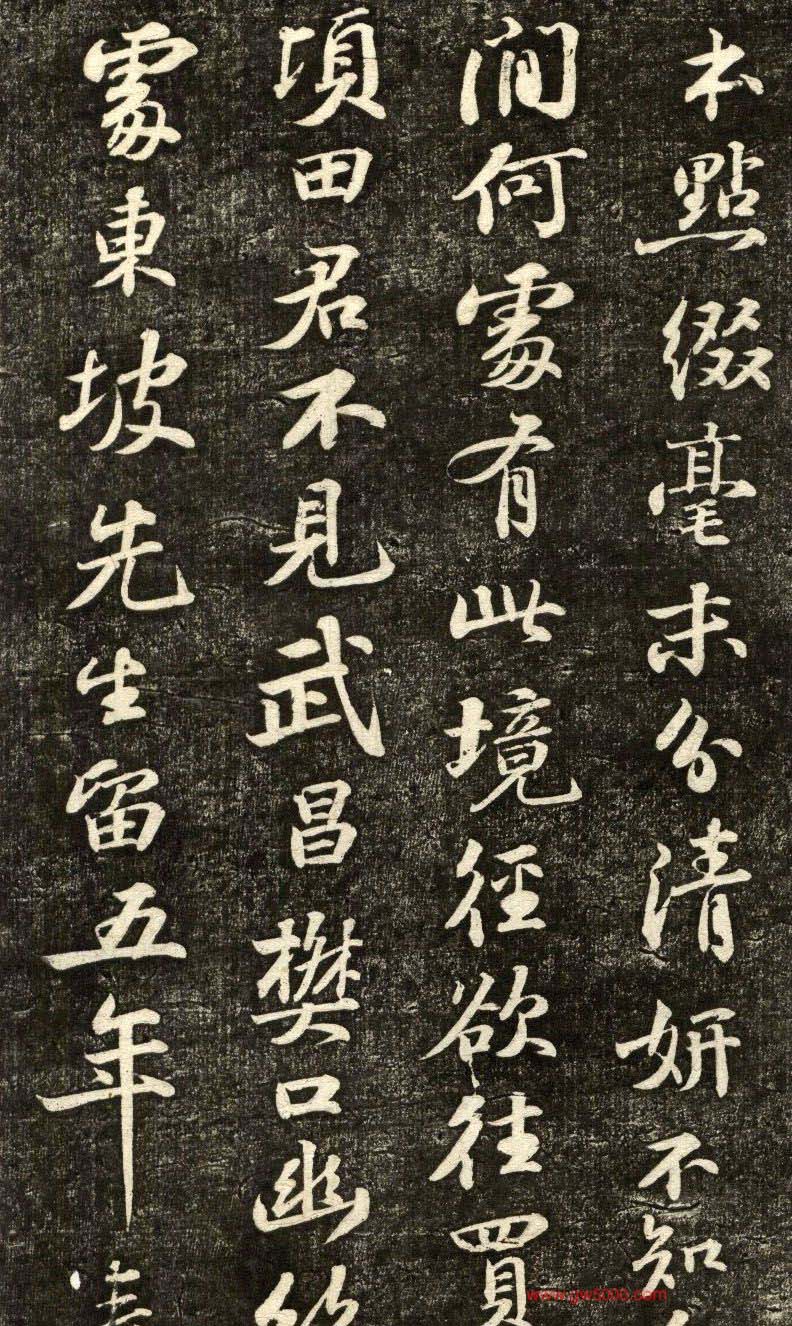 本點綴毫末分清妍不知
間何處有此境徑欲往買
頃田君不見武昌樊口幽
處東坡先生留五年